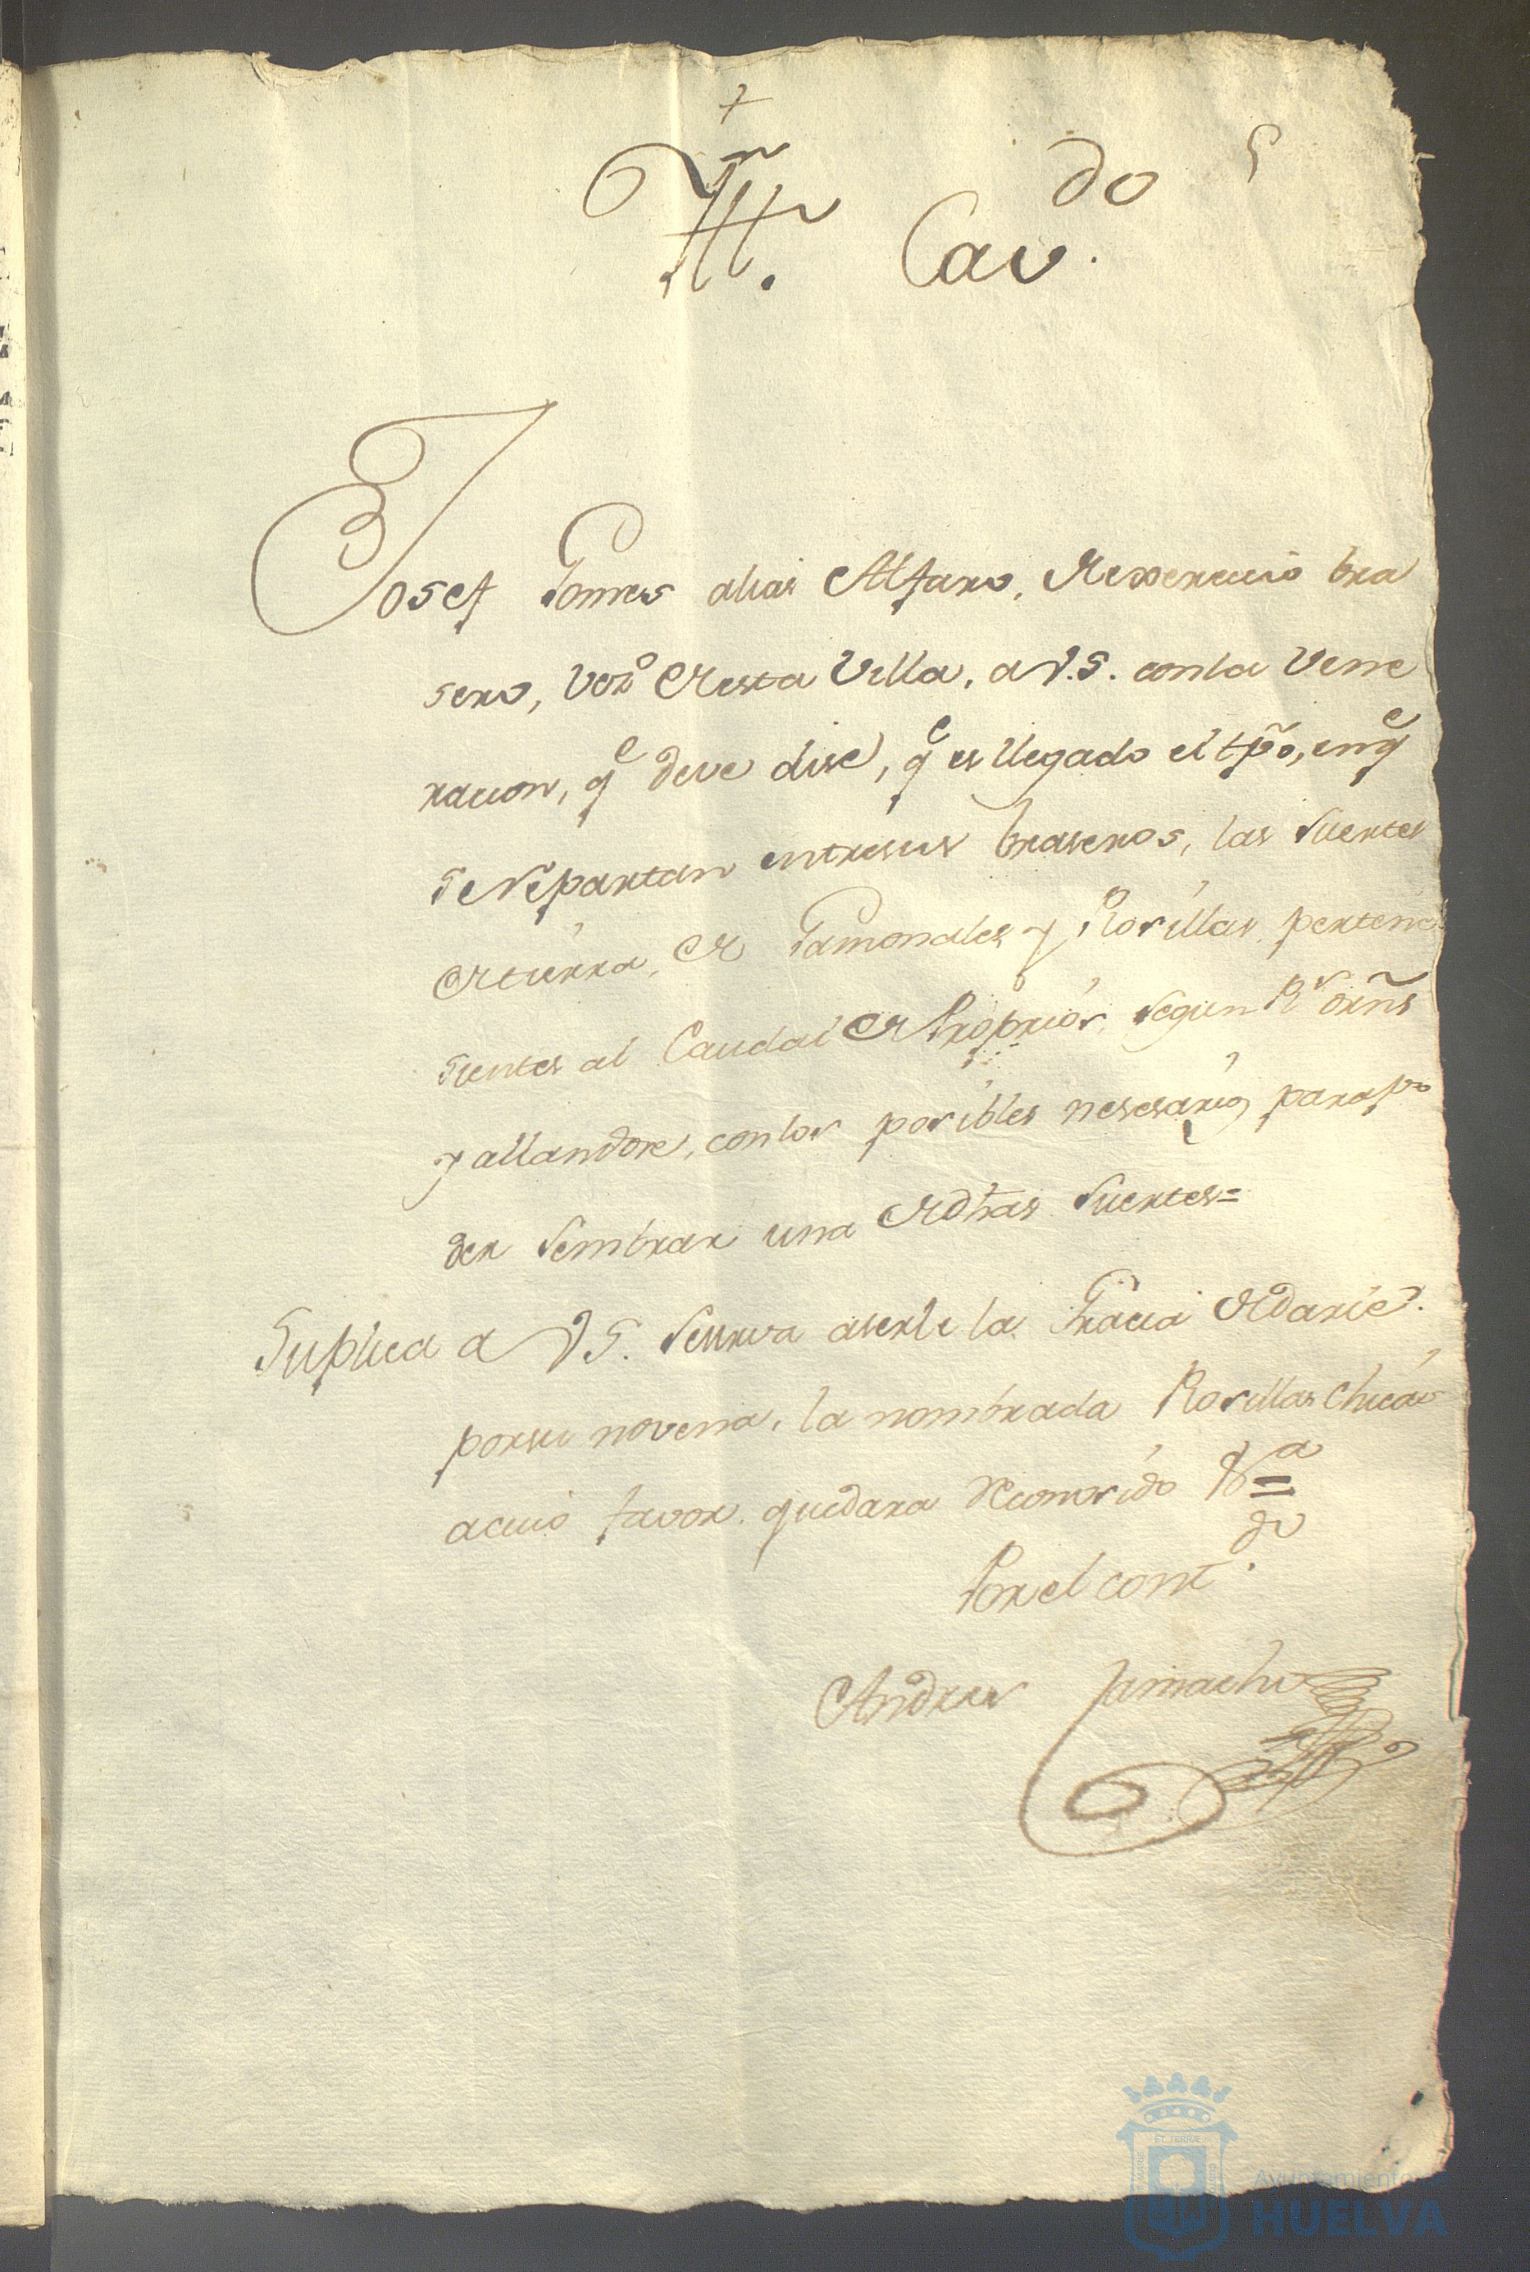 +
Ill.e Cav.do
Josef Gomes alias Alfaro, de exerciscio bra
sero, Vez.o desta Villa, a V.S. con la Vene
racion, q.e deve dise, q.e es llegado el tpõ, en q.e
se Repartan entresus braseros, las suertes
de tierra, de Gamonales y Rosillas, pertene
sientes al Caudal de Proprios, segun R.s orñs
y allandose, con los posibles nesesarios para po
der sembrar una de dhas suertes=
Suplica a V.S. se sirva aserle la Gracia de darle
por su novena, la nombrada Rosillas chicas
a cuio favor quedara Reconosido V.a =
Por el cont.do
Andres Camacho
Ayuntamiento de
HUELVA